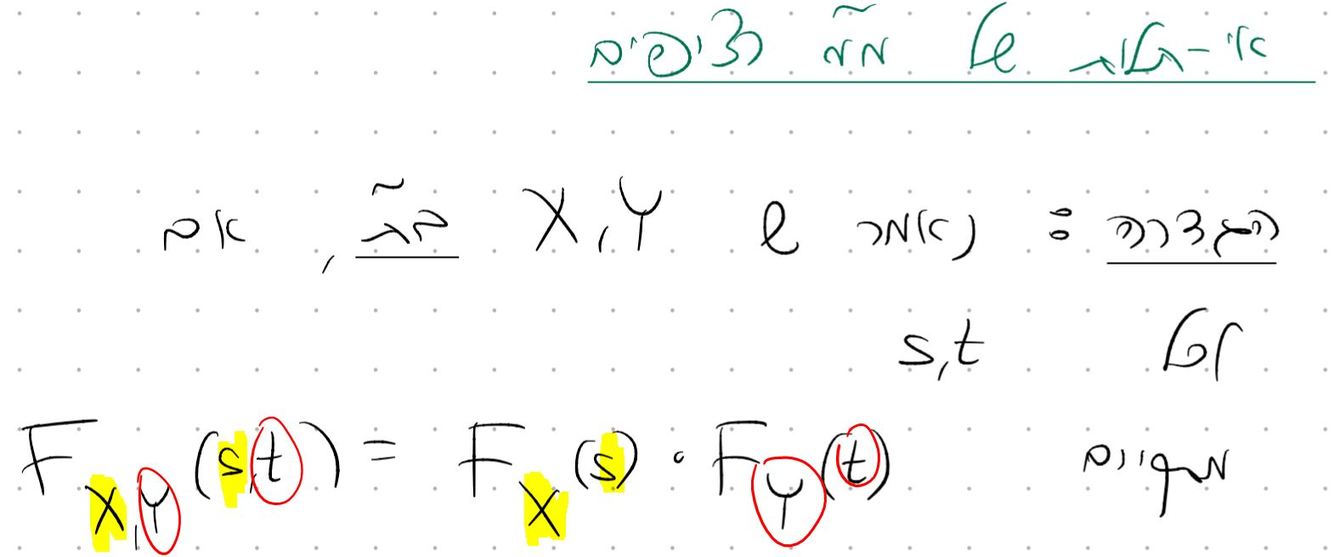 אי-תלות של ממ רציפים
הגדרה: נאמר ש X,Y בת, אם
לכל s,t
מקיים F_{X,Y}(s,t) = F_X(s) · F_Y(t)